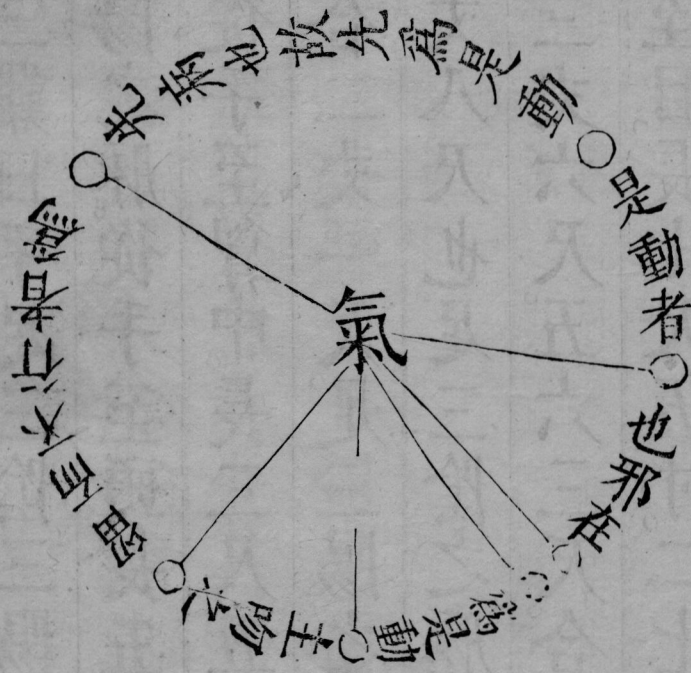 是動者
也邪在
爲是動
主呴之
留而不行者爲
先病也故先爲是動
氣